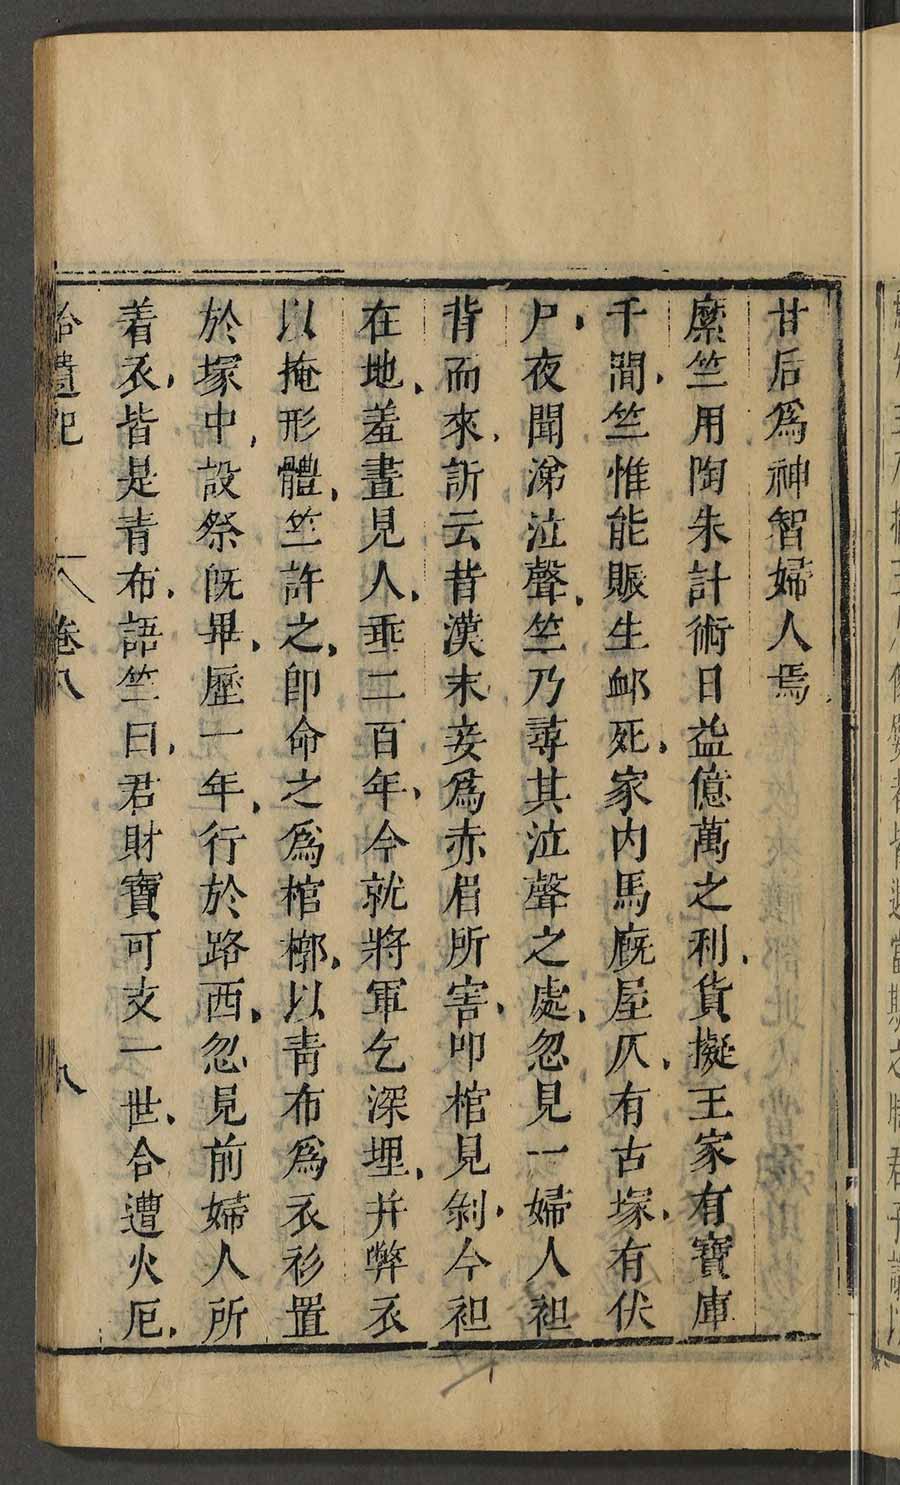 甘后爲神智婦人焉
糜竺用陶朱計術日益億萬之利貨擬王家有寶庫
千間竺惟能賑生䘏死家内馬厩屋仄有古塚有伏
尸夜聞涕泣聲竺乃尋其泣聲之處忽見一婦人袒
背而來訴云昔漢末妾爲赤眉所害叩棺見剝今袒
在地羞晝見人垂二百年今就將軍乞深埋并弊衣
以掩形體竺許之卽命之爲棺槨以靑布爲衣衫置
於塚中設祭旣畢歷一年行於路西忽見前婦人所
着衣皆是青布語竺曰君財寶可支一世合遭火厄
拾遺記 卷八 八